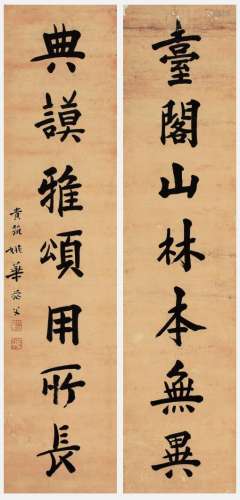 臺閣山林本無異
典謨雅頌用所長
貴筑姚華